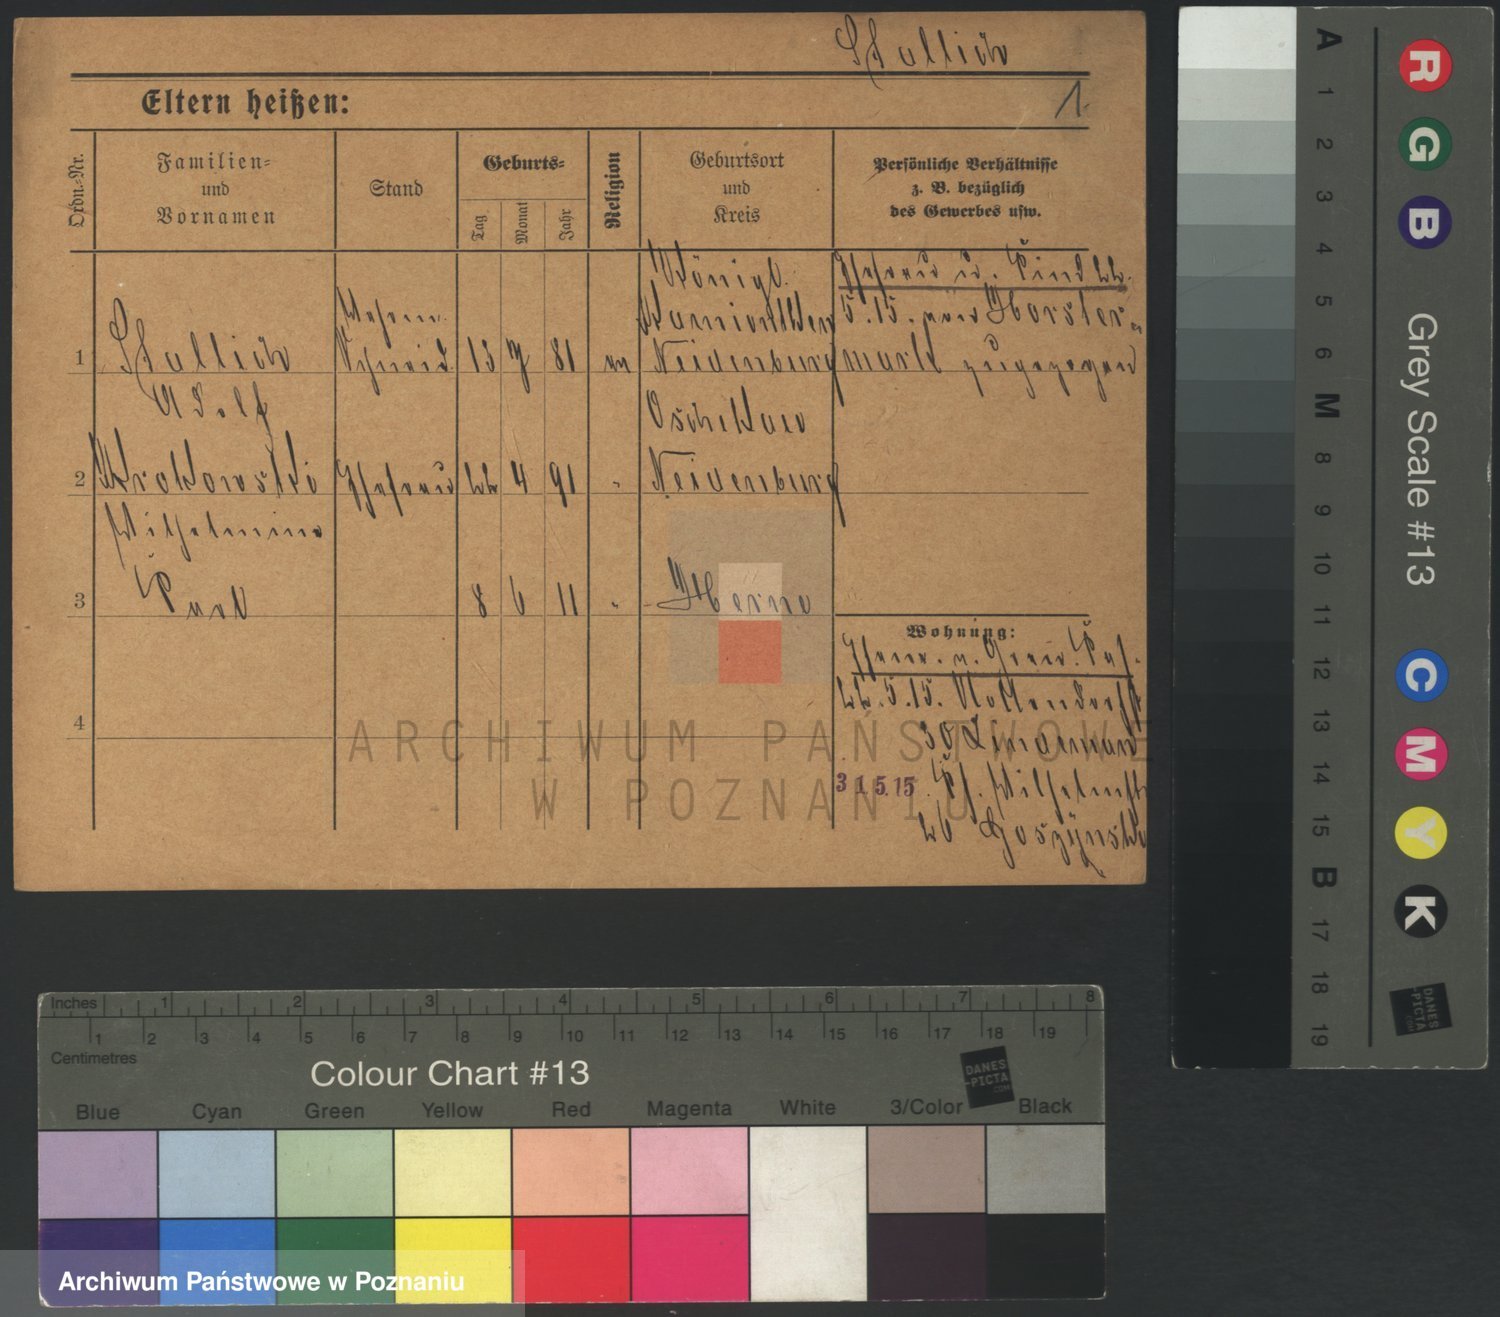 Stullich
Eltern heißen:
1.
Ordn.-Nr.
Familien-
und
Vornamen
Stand
Geburts-
Tag
Monat
Jahr
Religion
Geburtsort
und
Kreis
Persönliche Verhältnisse
z. B. bezüglich
des Gewerbes usw.
1
Stullich
Adolf
13 7 81 ev
Königl.
Neidenburg
Ehefrau u. Kind 22.
5. 15. von Horster-
mark zugezogen
2
Krokowski
Wilhelmine
Ehefrau 22 4 91 "
Oschekau
Neidenburg
3
Kurt
8 6 11 "
Herne
4
Wohnung:
22. 5. 15. Nollendorfstr
30
31.5.15 Wilhelmstr
26
ARCHIWUM PAŃSTWOWE
W POZNANIU
A 1 2 3 4 5 6 M 8 9 10 11 12 13 14 15 B 17 18 19
Grey Scale #13
R G B
C M Y K
DANES
-PICTA
.COM
Inches 1 2 3 4 5 6 7 8
1 2 3 4 5 6 7 8 9 10 11 12 13 14 15 16 17 18 19
Centimetres
Colour Chart #13
DANES
-PICTA
.COM
Blue Cyan Green Yellow Red Magenta White 3/Color Black
Archiwum Państwowe w Poznaniu